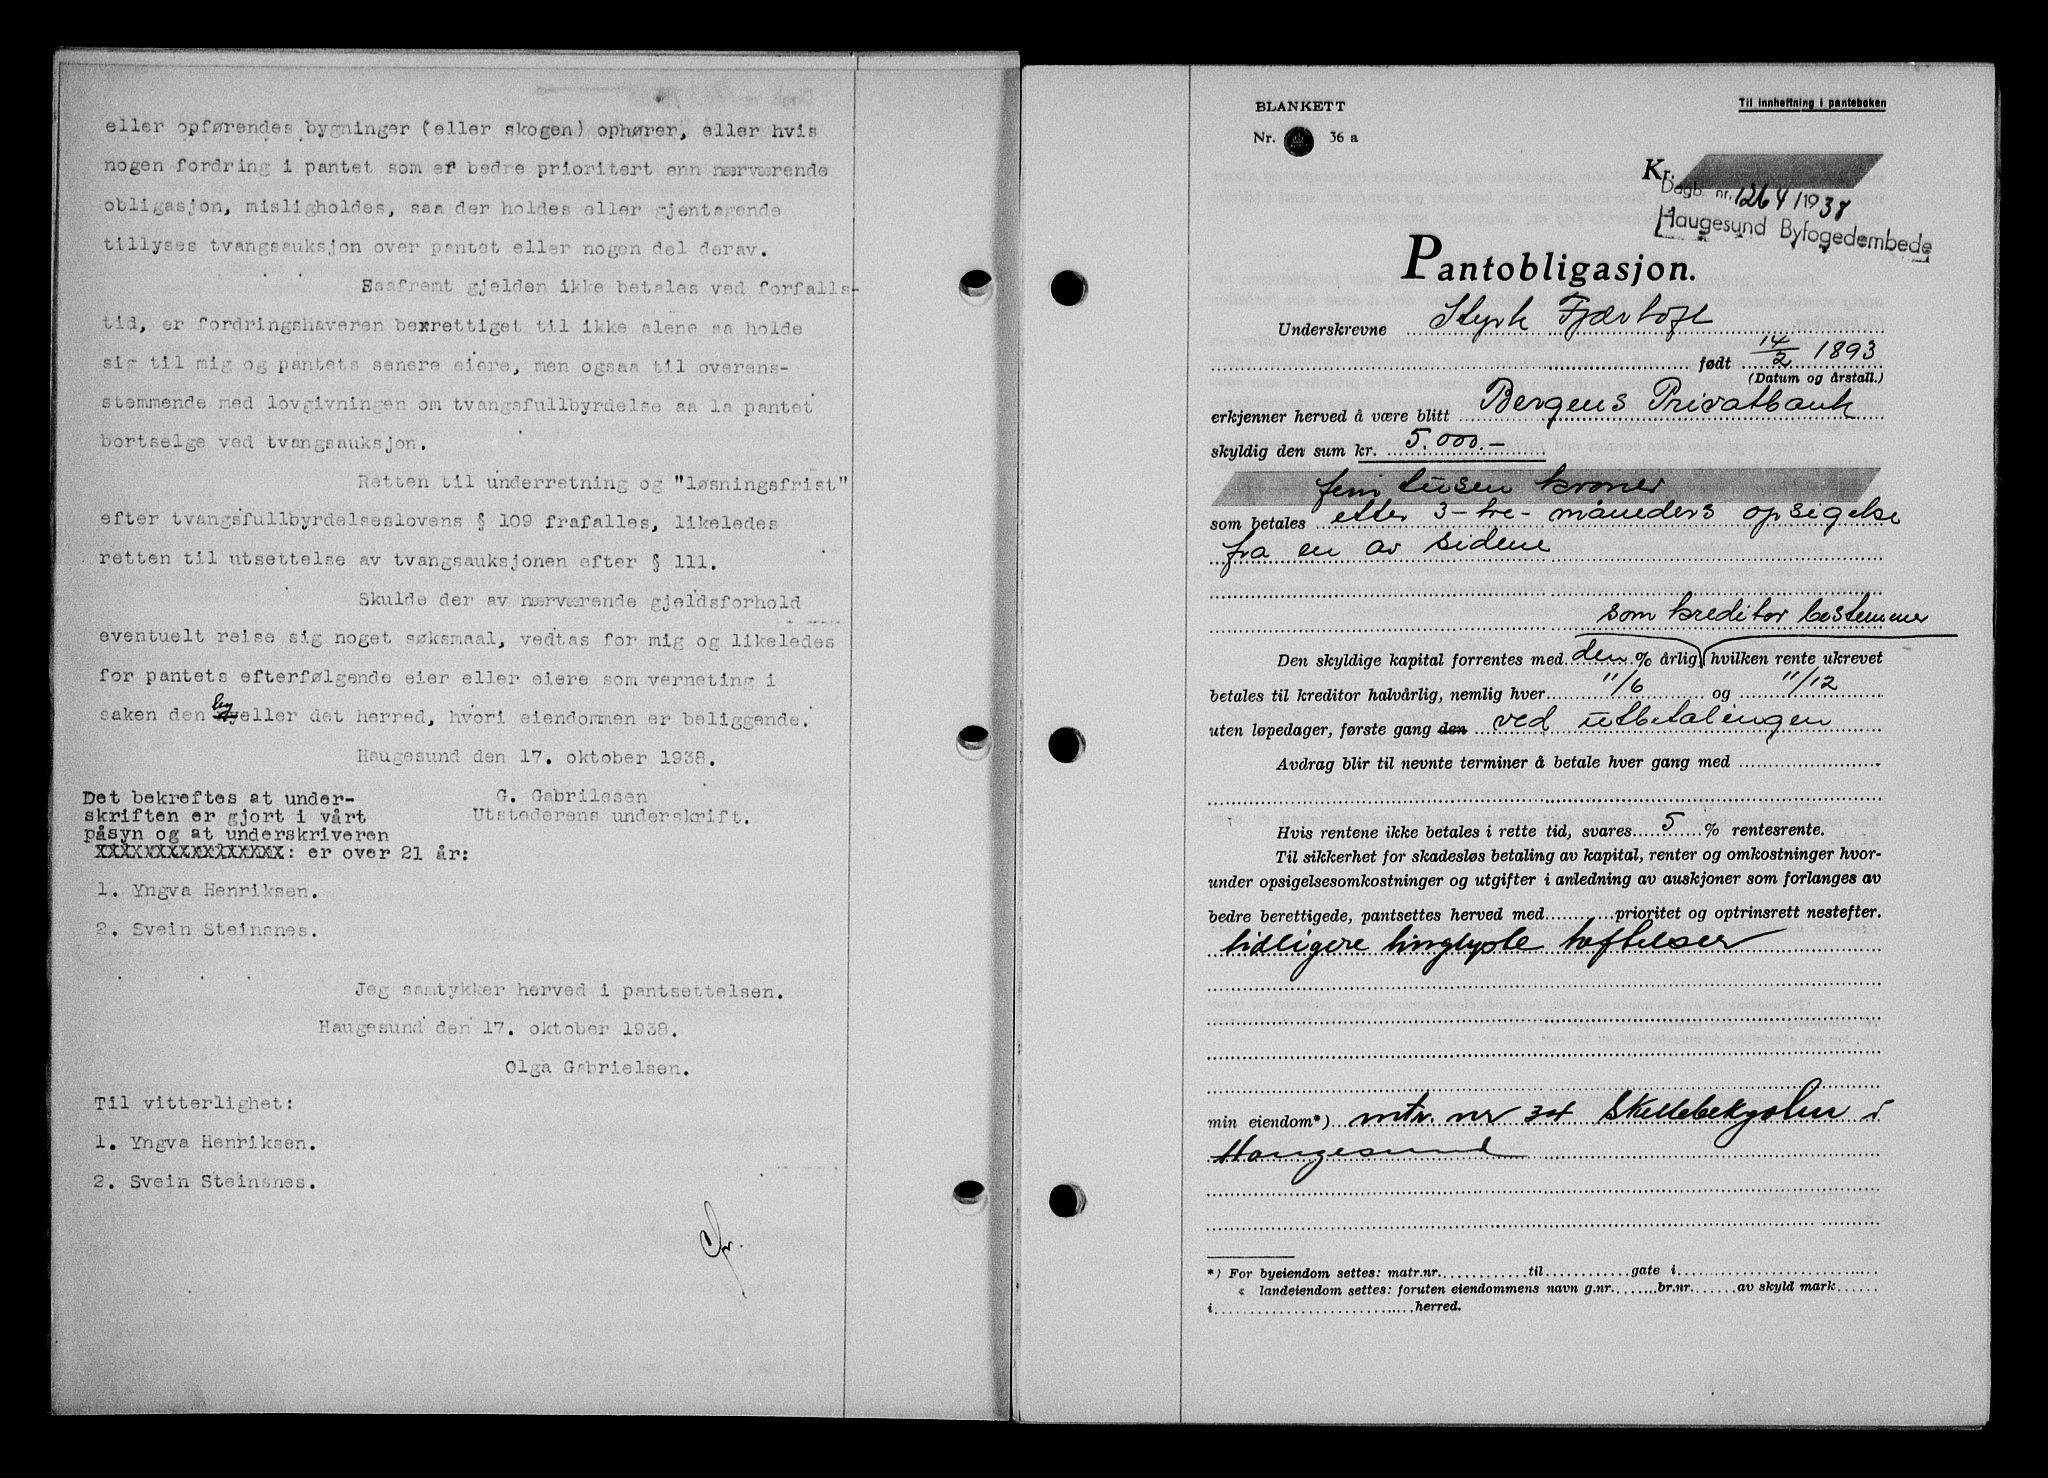 eller opførendes bygninger (eller skogen) ophører, eller hvis
nogen fordring i pantet som er bedre prioritert enn nærværende
obligasjon, misligholdes, saa der holdes eller gjentagende
tillyses tvangsauksjon over pantet eller nogen del derav.
Saafremt gjelden ikke betales ved forfalls-
tid, er fordringshaveren bexrettiget til ikke alene aa holde
sig til mig og pantets senere eiere, men ogsaa til overens-
stemmende med lovgivningen om tvangsfullbyrdelse aa la pantet
bortselge ved tvangsauksjon.
Retten til underretning og "løsningsfrist"
efter tvangsfullbyrdelseslovens § 109 frafalles, likeledes
retten til utsettelse av tvangsauksjonen efter § 111.
Skulde der av nærværende gjeldsforhold
eventuelt reise sig noget søksmaal, vedtas for mig og likeledes
for pantets efterfølgende eier eller eiere som verneting i
saken den by eller det herred, hvori eiendommen er beliggende.
Haugesund den 17. oktober 1938.
Det bekreftes at under-
skriften er gjort i vårt
påsyn og at underskriveren
XXXXXXXXXXXXXXXXX: er over 21 år:
G. Gabrilesen
Utstederens underskrift.
1. Yngva Henriksen.
2. Svein Steinsnes.
Jeg samtykker herved i pantsettelsen.
Haugesund den 17. oktober 1938.
Olga Gabrielsen.
Til vitterlighet:
1. Yngva Henriksen.
2. Svein Steinsnes.
BLANKETT
Nr. 36 a
Til innheftning i panteboken
Kr.
Dagb. nr. 1264/1938
Haugesund Byfogedembede
Pantobligasjon.
Underskrevne Styrk Fjærtoft
født 14/2 1893
(Datum og årstall.)
erkjenner herved å være blitt Bergens Privatbank
skyldig den sum kr. 5.000.-
fem tusen kroner
som betales etter 3-tre- måneders opsigelse
fra en av sidene
som kreditor bestemmer
Den skyldige kapital forrentes med den % årlig, hvilken rente ukrevet
betales til kreditor halvårlig, nemlig hver 11/6 og 11/12
uten løpedager, første gang den ved utbetalingen
Avdrag blir til nevnte terminer å betale hver gang med
Hvis rentene ikke betales i rette tid, svares 5 % rentesrente.
Til sikkerhet for skadesløs betaling av kapital, renter og omkostninger hvor-
under opsigelsesomkostninger og utgifter i anledning av auskjoner som forlanges av
bedre berettigede, pantsettes herved med prioritet og optrinsrett nestefter.
tidligere tinglyste heftelser
min eiendom*) mtr. nr 34 Skillebekgaten i
Haugesund
*) For byeiendom settes: matr.nr. til gate i
« landeiendom settes: foruten eiendommens navn g.nr. br.nr. av skyld mark
i herred.